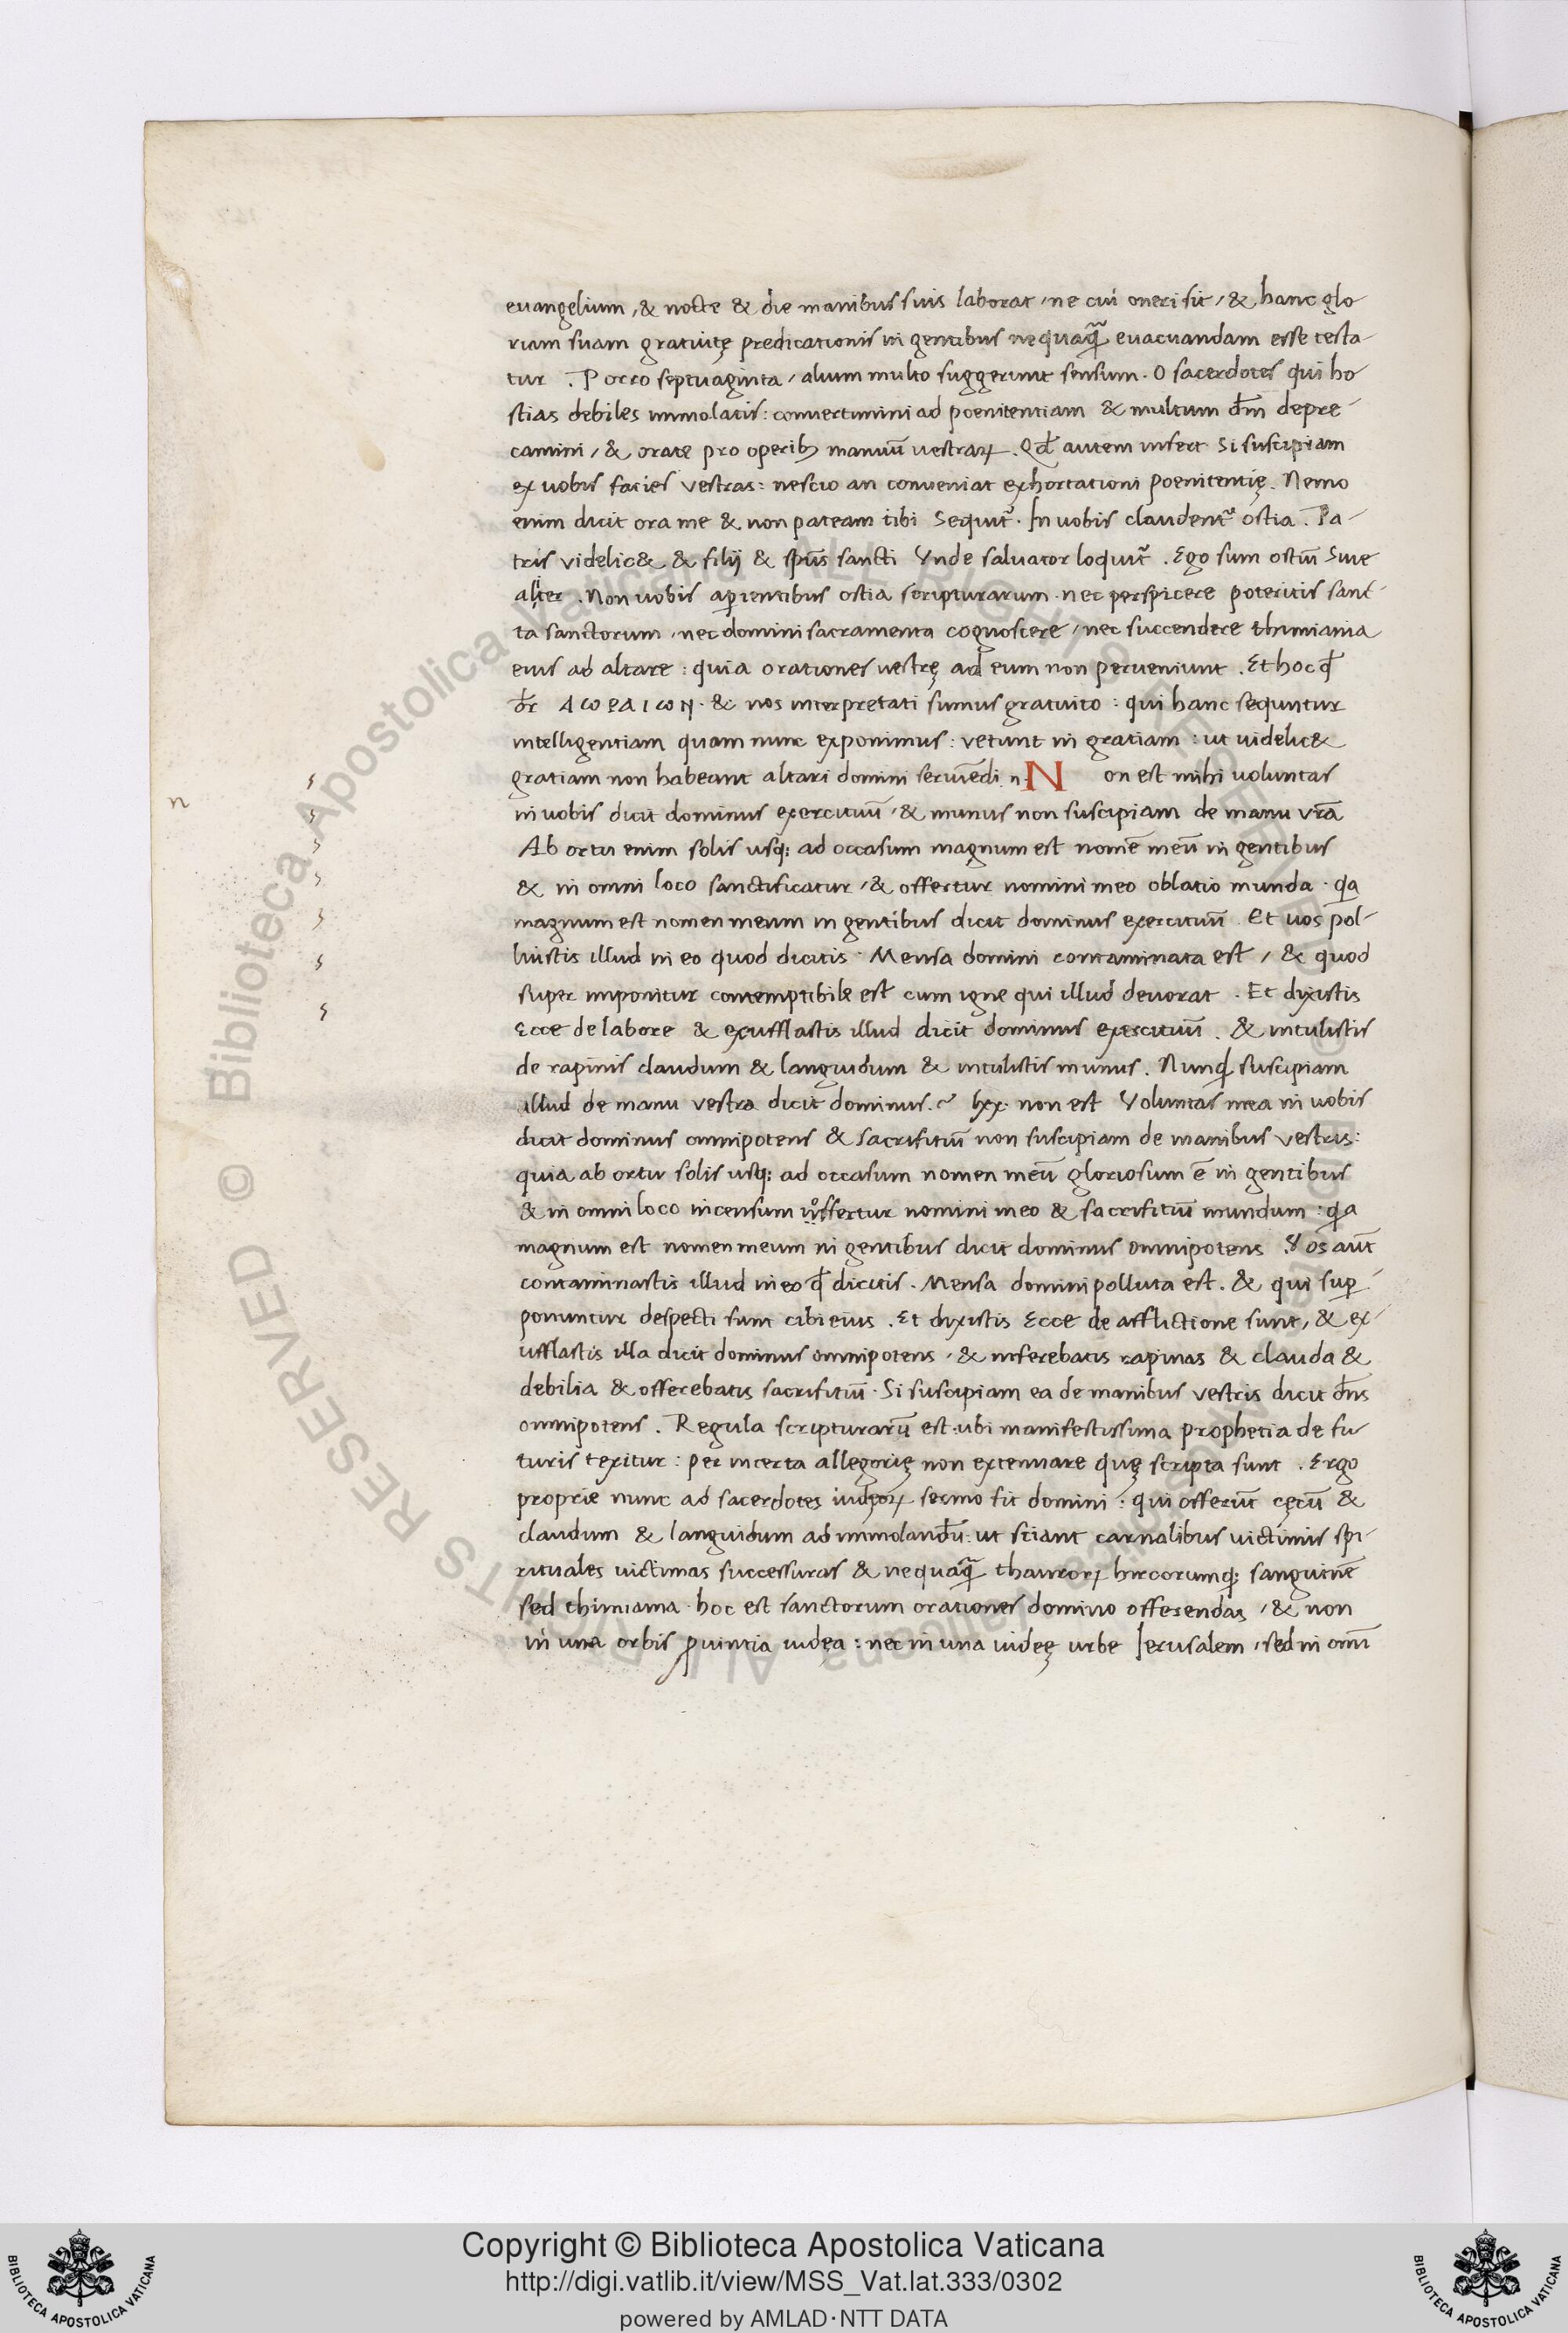 euangelium, & nocte & die manibus suis laborat, ne cui oneri sit, & hanc glo
riam suam gratuitę predicationis in gentibus nequaꝗ̃ euacuandam esse testa-
tur . Porro septuaginta, alium multo suggerunt sensum. O sacerdotes qui ho
stias debiles immolatis: conuertimini ad poenitentiam & multum dm̄ depre-
camini, & orate pro operibꝫ manuū uestraꝝ. Qd̄ autem infert Si suscipiam
ex uobis facies vestras: nescio an conueniat exhortationi poenitentię. Nemo
enim dicit ora me & non pateam tibi Sequit̃. In uobis claudent̃ ostia. Pa-
tris videlic& & filij & spūs sancti Vnde saluator loquit̃. Ego sum ostiū Siue
alit̃er. Non uobis aꝑientibus ostia scripturarum. nec perspicere poteritis sanc-
ta sanctorum, nec domini sacramenta cognoscere, nec succendere thimiama
eius ad altare: quia orationes uestrę ad eum non perueniunt. Et hoc qd̄
dr̄ ΔωΡΔΙωΝ. & nos interpretati sumus gratuito: qui hanc sequntur
intelligentiam quam nunc exponimus: vetunt in gratiam: ut uidelic&
gratiam non habeant altari domini seruiēdi. n. Non est mihi uoluntas
in uobis dicit dominus exercituū, & munus non suscipiam de manu vr̄a
Ab ortu enim solis usqꝫ ad occasum magnum est nomē meū in gentibus
& in omni loco sanctificatur, & offertur nomini meo oblatio munda. qa
magnum est nomen meum in gentibus dicit dominus exercituū. Et uos pol-
luistis illud in eo quod dicitis. Mensa domini contaminata est, & quod
super imponitur contemptibile est cum igne qui illud deuorat. Et dixistis
Ecce de labore & exsufflastis illud dicit dominus exercituū. & intulistis
de rapinis claudum & languidum & intulistis munus. Nunꝗd suscipiam
illud de manu vestra dicit dominus.~ lxx. non est Voluntas mea in uobis
dicit dominus omnipotens & sacrifitiū non suscipiam de manibus vestris:
quia ab ortu solis usqꝫ ad occasum nomen meū gloriosum ē in gentibus
& in omni loco incensum offertur nomini meo & sacrifitiū mundum: qa
magnum est nomen meum in gentibus dicit dominus omnipotens. Vos aut̄
contaminastis illud in eo qd̄ dicitis. Mensa domini polluta est. & qui suꝑ-
ponuntur despecti sunt cibi eius. Et dixistis Ecce de afflictione sunt, & ex-
ufflastis illa dicit dominus omnipotens, & inferebatis rapinas & clauda &
debilia & offerebatis sacrifitiū. Si suscipiam ea de manibus vestris dicit dn̄s
omnipotens. Regula scripturarū est: ubi manifestissima prophetia de fu
turis texitur: per incerta allegorię non extenuare quę scripta sunt. Ergo
proprie nunc ad sacerdotes iudęoꝝ sermo fit domini: qui offerūt cęcū &
claudum & languidum ad immolandū: ut sciant carnalibus uictimis spi-
rituales uictimas successuras & nequaꝗ̃ thauroꝝ hircorumqꝫ sanguinē
sed thimiama. hoc est sanctorum orationes domino offerendas, & non
in una orbis ꝓuintia iudęa: nec in una iudeę urbe Ierusalem, sed in omī
n
Copyright © Biblioteca Apostolica Vaticana
http://digi.vatlib.it/view/MSS_Vat.lat.333/0302
powered by AMLAD·NTT DATA
BIBLIOTECA APOSTOLICA VATICANA
BIBLIOTECA APOSTOLICA VATICANA